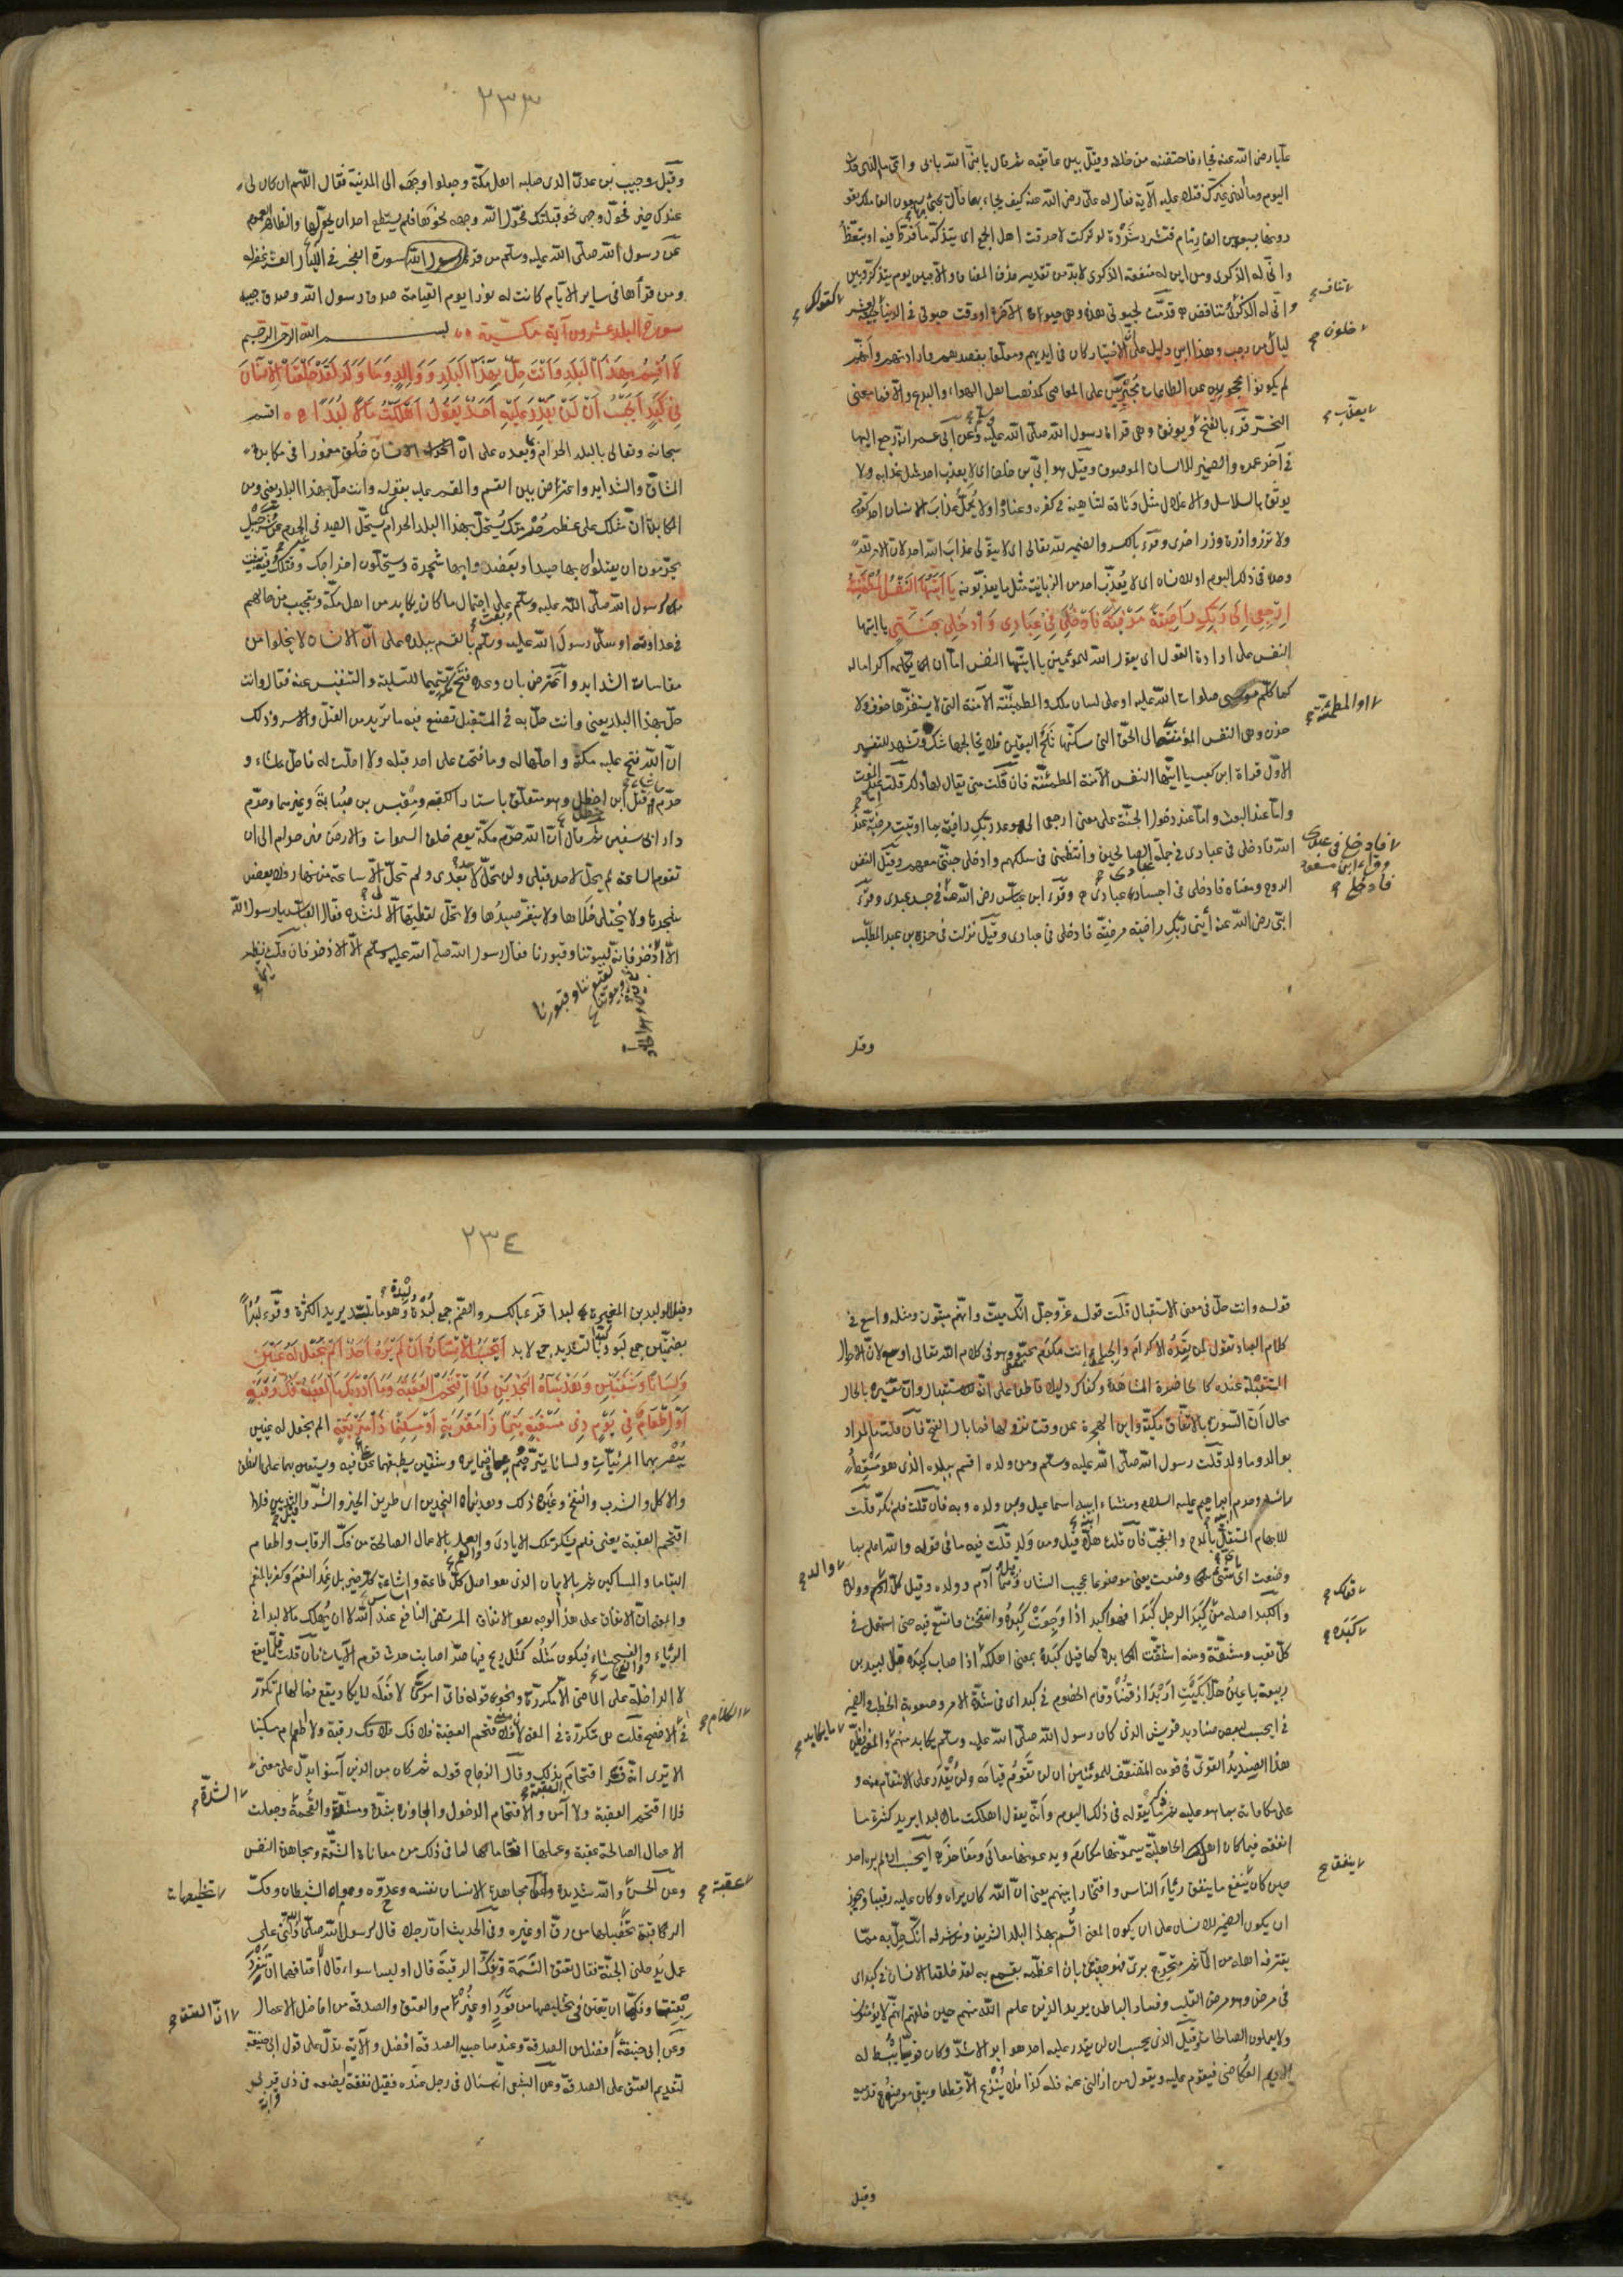 عليا رضى الله عنه فجاء فاحتضنه من خلفه وقبّل بين عاتقيه ثم قال يا نبىّ الله بابى وامى ما الذى حدث
اليوم وما الذى غيّرك فتلا عليه الآية فقال له علىّ رضى الله عنه كيف يجاء بها قال يجئ بها سبعون الف ملك يقو
دونها بسبعين الف زمام فتشرد شَرْدة لو تُركت لاحرقت اهل الجمع اى يتذكّر ما فرّط فيه او يتّعظ
وانّى له الذكرى ومن اين له منفعة الذكرى لا بدّ من تقدير حذف المضاف والّا فبين يوم يتذكّر وبين
وانّى له الذكرىٰ تناقض قدّمت لحيوتى هذه وهى حيوة الآخرة او وقت حيوتى فى الدنيا كقولك جئته لعشر
ليال خلون من رجب وهذا ابين دليل على انّ الاختيار كان فى ايديهم ومعلّقا بقصدهم وارادتهم وانّهم
لم يكونوا محجورين عن الطاعات مُجْبَرين على المعاصى كمذهب اهل الاهواء والبدع والّا فما معنى
التحسّر قرئ بالفتح يعذّب ويوثق وهى قراءة رسول الله صلّى الله عليه وسلم وعن ابى عمرو انه رجع اليها
فى آخر عمره والضمير للانسان الموصوف وقيل هو ابىّ بن خلف اى لا يعذب احد مثل عذابه ولا
يوثق بالسلاسل والاغلال مثل وَثاقه لتناهيه فى كفره وعناده او لا يُحمّل عذابَ الانسان احد كقوله
ولا تزر وازرة وزر اخرى وقرئ بالكسر والضمير لله تعالى اى لا يتولّى عذاب الله احد لانّ الامر لله
وحده فى ذلك اليوم او للانسان اى لا يُعذّب احد من الزبانية مثل ما يعذّبونه يَا اَيَّتُهَا النَّفْسُ الْمُطْمَئِنَّةُ
ارْجِعِى اِلَى رَبِّكِ رَاضِيَةً مَرْضِيَّةً فَادْخُلِى فِى عِبَادِى وَادْخُلِى جَنَّتِى يا ايتها
النفس على ارادة القول اى يقول الله للمؤمنين يا ايّتها النفس امّا ان يكلّمه اكراما له
كما كلّم موسى صلوات الله عليه او على لسان ملك والمطمئنّة الآمنة التى لا يستفزّها خوف ولا
حزن وهى النفس المؤمنة او المطمئنّة الى الحقّ التى سكّنها ثَلَجُ اليقين فلا يخالجها شكّ ويشهد للتفسير
الاوّل قراءة ابىّ بن كعب يا ايّتها النفس الآمنة المطمئنّة فان قلت متى يقال لها ذلك قلت امّا عند الموت
وامّا عند البعث وامّا عند دخول الجنّة على معنى ارجعى الى موعد ربّك راضية بما اوتيتِ مرضيّة عند
الله فادخلى فى عبادى فى جملة عبادى الصالحين وانتظمى فى سلكهم وادخلى جنّتى معهم وقيل النفس
الروح ومعناه فادخلى فى اجساد عبادى وقرأ ابن عبّاس رضى الله عنه فى جسد عبدى وقرأ
ابىّ رضى الله عنه ائتى ربّكِ راضية مرضيّة فادخلى فى عبادى وقيل نزلت فى حمزة بن عبد المطّلب
فادخلى فى عبدى
وقراء ابن مسعود
وقيل
٢٣٣
وقيل وخبيب بن عدىّ الذى صلبه اهل مكّة وجعلوا وجهه الى المدينة فقال اللهم ان كان لى
عندك خير فحوّل وجهى نحو قبلتك فحوّل الله وجهه نحوها فلم يستطع احد ان يحوّلها والظاهر العموم
عن رسول الله صلّى الله عليه وسلّم من قرأ سورة الفجر فى الليالى العشر غفر له
ومن قرأها فى ساير الايّام كانت له نورا يوم القيامة صدق رسول الله وصدق حبيبه
سورة البلد عشرون آية مكيّة بسم الله الرحمن الرحيم
لَا اُقْسِمُ بِهٰذَا الْبَلَدِ وَاَنْتَ حِلٌّ بِهٰذَا الْبَلَدِ وَوَالِدٍ وَمَا وَلَدَ لَقَدْ خَلَقْنَا الْاِنْسَانَ
فِى كَبَدٍ اَيَحْسَبُ اَنْ لَنْ يَقْدِرَ عَلَيْهِ اَحَدٌ يَقُولُ اَهْلَكْتُ مَالًا لُبَدًا اقسم
سبحانه وتعالى بالبلد الحرام وبما بعده على انّ الانسان خُلق مغمورا فى مكابدة
المشاقّ والشدايد واعترض بين القسم والمقسم عليه بقوله وانت حلّ بهذا البلد يعنى ومن
المكابدة انّ مثلك على عظم حُرمتك يُستحلّ بهذا البلد الحرام كما يستحلّ الصيد فى غير الحرم عن شرحبيل
يحرّمون ان يقتلوا بها صيدا ويعضدوا بها شجرة ويستحلّون اخراجك وقتلك وفيه تثبيت
من رسول الله صلّى الله عليه وسلّم على احتمال ما كان يكابد من اهل مكّة وتعجيب من حالهم
فى عداوته او سلّى رسولَ الله عليه وسلّم بالقسم ببلده على انّ الانسان لا يخلوا من
مقاساة الشدايد واعترض بان وعده فتحَ مكّة تتميما للتسلية والتنفيس عنه فقال وانت
حلّ بهذا البلد يعنى وانت حلّ به فى المستقبل تصنع فيه ما تريد من القتل والاسر وذلك
انّ الله فتح عليه مكّة واحلّها له وما فتحت على احد قبله ولا احلّت له فاحلّ ما شاء و
حرّم ما شاء قتل ابن خطل وهو متعلّق باستار الكعبة ومِقْيَس بن صُبَابة وغيرهما وحرّم
دار ابى سفين ثم قال انّ الله حرّم مكّة يوم خلق السموات والارض فهى حرام الى ان
تقوم الساعة لم تحلّ لاحد قبلى ولن تحلّ لاحد بعدى ولم تحلّ لى الّا ساعة من نهار فلا يعضد
شجرها ولا يُختلى خلاها ولا ينفّر صيدُها ولا تحلّ لقطتها الّا لمنشد فقال العبّاس يا رسول الله
الّا الاذخر فانّه لبيوتنا وقبورنا فقال رسول الله صلّى الله عليه وسلّم الّا الاذخر فان قلت اين نظير
قوله وانت حلّ فى معنى الاستقبال قلت قوله عزّ وجلّ انّك ميّت وانّهم ميّتون ومثله واسع فى
كلام العباد تقول لمن تَعِدُه الاكرام والحباء انت مكرم محبوّ وهو فى كلام الله تعالى اوسع لانّ الاحوال
المستقبلة عنده كالحاضرة المشاهدة وكفاك دليلا قاطعا على انّه للاستقبال وانّ تفسيره بالحال
محال انّ السورة بالاتّفاق مكيّة واين الهجرة عن وقت نزولها فما بال الفتح فان قلت ما المراد
بوالد وما ولد قلت رسول الله صلّى الله عليه وسلّم ومن ولده اقسم ببلده الذى هو مسقط
رأسه وحرم ابيه ابراهيم عليه السلام ومنشاء ابيه اسماعيل ومن ولده وبه فان قلت فلم نكّر قلت
للابهام المستقلّ بالمدح والتعجّب فان قلت هلّا قيل ومن ولد قلت فيه ما فى قوله والله اعلم بما
وضعت اى باىّ شئ وضعت يعنى موضوعا عجيب الشان وقيل هما آدم وولده وقيل كلّ والد وولد
والكبد اصله من قولك كَبِدَ الرجل كبَدا فهو اكبد اذا وجِعَتْ كَبِدُه وانتفخت فاتّسع فيه حتى استعمل فى
كلّ تعب ومشقّة ومنه اشتقّت المكابدة كما قيل كبَته بمعنى اهلكه واصله كَبَده اذا اصاب كبِدَه قال لبيد بن
ربيعة يا عينُ هلّا بَكَيْتِ اَرْبَدَ اذ قُمْنَا وقام الخصوم فى كبد اى فى شدّة الامر وصعوبة الخطب والضمير
فى ايحسب لبعض صناديد قريش الذى كان رسول الله صلّى الله عليه وسلّم يكابد منهم ما يكابد والمعنى ايظنّ
هذا الصنديد القوىّ فى قومه المتضعّف للمؤمنين ان لن تقوم قيامة ولن يُقْدَر على الانتقام منه و
على مكافاته بما هو عليه ثم ذكر ما يقوله فى ذلك اليوم وانّه يقول اهلكت مالا لبدا يريد كثرة ما
انفقه فيما كان اهل الجاهليّة يسمّونها مكارم ويدعونها معالى ومفاخر ايحسب ان لم يره احد
حين كان ينفق ما ينفق رئاء الناس وافتخارا بينهم يعنى انّ الله كان يراه وكان عليه رقيبا ويجوز
ان يكون الضمير للانسان على ان يكون المعنى اقسم بهذا البلد الشريف ومن شرفه انّك حلّ به ممّا
يقترفه اهله من المآثم متحرّج برئ فهو حقيق بان اعظّمه بقسمى به لقد خلقنا الانسان فى كبد اى
فى مرض وهو مرض القلب وفساد الباطن يريد الذين علم الله منهم حين خلقهم انّهم لا يؤمنون
ولا يعملون الصالحات وقيل الذى يحسب ان لن يقدر عليه احد هو ابو الاشدّ وكان قويّا يُبْسَط له
الاديم العُكاظى فيقوم عليه ويقول من ازالنى عنه فله كذا فلا يُنْزَع الّا قطعا ويبقى موضع قدميه
وقيل
٢٣٤
وقيل الوليد بن المغيرة لبدا قرئ بالكسر والضمّ جمع لُبْدة ولِبْدة وهو ما تلبّد يريد الكثرة وقرئ لُبُدًا
بضمّتين جمع لبود ولبّدا بالتشديد جمع لابد اَيَحْسَبُ اَنْ لَمْ يَرَهُ اَحَدٌ اَلَمْ نَجْعَلْ لَهُ عَيْنَيْنِ
وَلِسَانًا وَشَفَتَيْنِ وَهَدَيْنَاهُ النَّجْدَيْنِ فَلَا اقْتَحَمَ الْعَقَبَةَ وَمَا اَدْرٰيكَ مَا الْعَقَبَةُ فَكُّ رَقَبَةٍ
اَوْ اِطْعَامٌ فِى يَوْمٍ ذِى مَسْغَبَةٍ يَتِيمًا ذَا مَقْرَبَةٍ اَوْ مِسْكِينًا ذَا مَتْرَبَةٍ الم نجعل له عينين
يُبْصر بهما المرئيّات ولسانا يترجم به عمّا فى ضمايره وشفتين يطبقهما على فيه ويستعين بهما على النطق
والاكل والشرب والنفخ وغير ذلك وهديناه النجدين اى طريقى الخير والشرّ وقيل الثديين فلا
اقتحم العقبة يعنى فلم يشكر تلك الايادى والنعم بالاعمال الصالحة من فكّ الرقاب واطعام
اليتاما والمساكين ثم بالايمان الذى هو اصل كلّ طاعة واساس كلّ خير بل غَمَط النعم وكفر بالمنعم
والمعنى انّ الانفاق على هذا الوجه هو الانفاق المرتضى النافع عند الله لا ان يُهلك مالا لبدا فى
الرئاء والفخار فيكون مثلُه كمثل ريح فيها صرّ اصابت حرث قوم الآية فان قلت قلّما يقع
لا الداخلة على الماضى الّا مكرّرة ونحو قوله فاىّ امر سيّئ لا فَعَله لا يكاد يقع فما لها لم تكرّر
فى الكلام الافصح قلت هى متكرّرة فى المعنى لانّ معنى فلا اقتحم العقبة فلا فكّ رقبة ولا اطعم مسكينا
الا يرى انّه فسّر اقتحام العقبة بذلك وقال الزجاج قوله ثم كان من الذين آمنوا يدلّ على معنى
فلا اقتحم العقبة ولا آمن والاقتحام الدخول والمجاوزة بشدّة ومشقّة والقُحْمة الشدّة وجعلت
الاعمال الصالحة عقبة وعملها اقتحاما لها لما فى ذلك من معاناة المشقّة ومجاهدة النفس
وعن الحسن عقبة والله شديدة مجاهدة الانسان نفسه وهواه وعدوّه الشيطان وفكّ
الرقبة تخليصها من رقّ او غيره وفى الحديث انّ رجلا قال لرسول الله صلّى الله عليه دُلّنى على
عمل يدخلنى الجنّة فقال تعتق النسمة وتفكّ الرقبة قال او ليسا سواء قال لا اعتاقها ان تنفرد
بعتقها وفكّها ان تعين فى تخليصها من قَوَد او غُرْم والعتق والصدقة من افاضل الاعمال
وعن ابى حنيفة انّ العتق افضل من الصدقة وعند صاحبيه الصدقة افضل والآية ادلّ على قول ابى حنيفة
لتقديم العتق على الصدقة وعن الشعبى انّه قال فى رجل عنده فضل نفقة ايضعه فى ذى قرابة